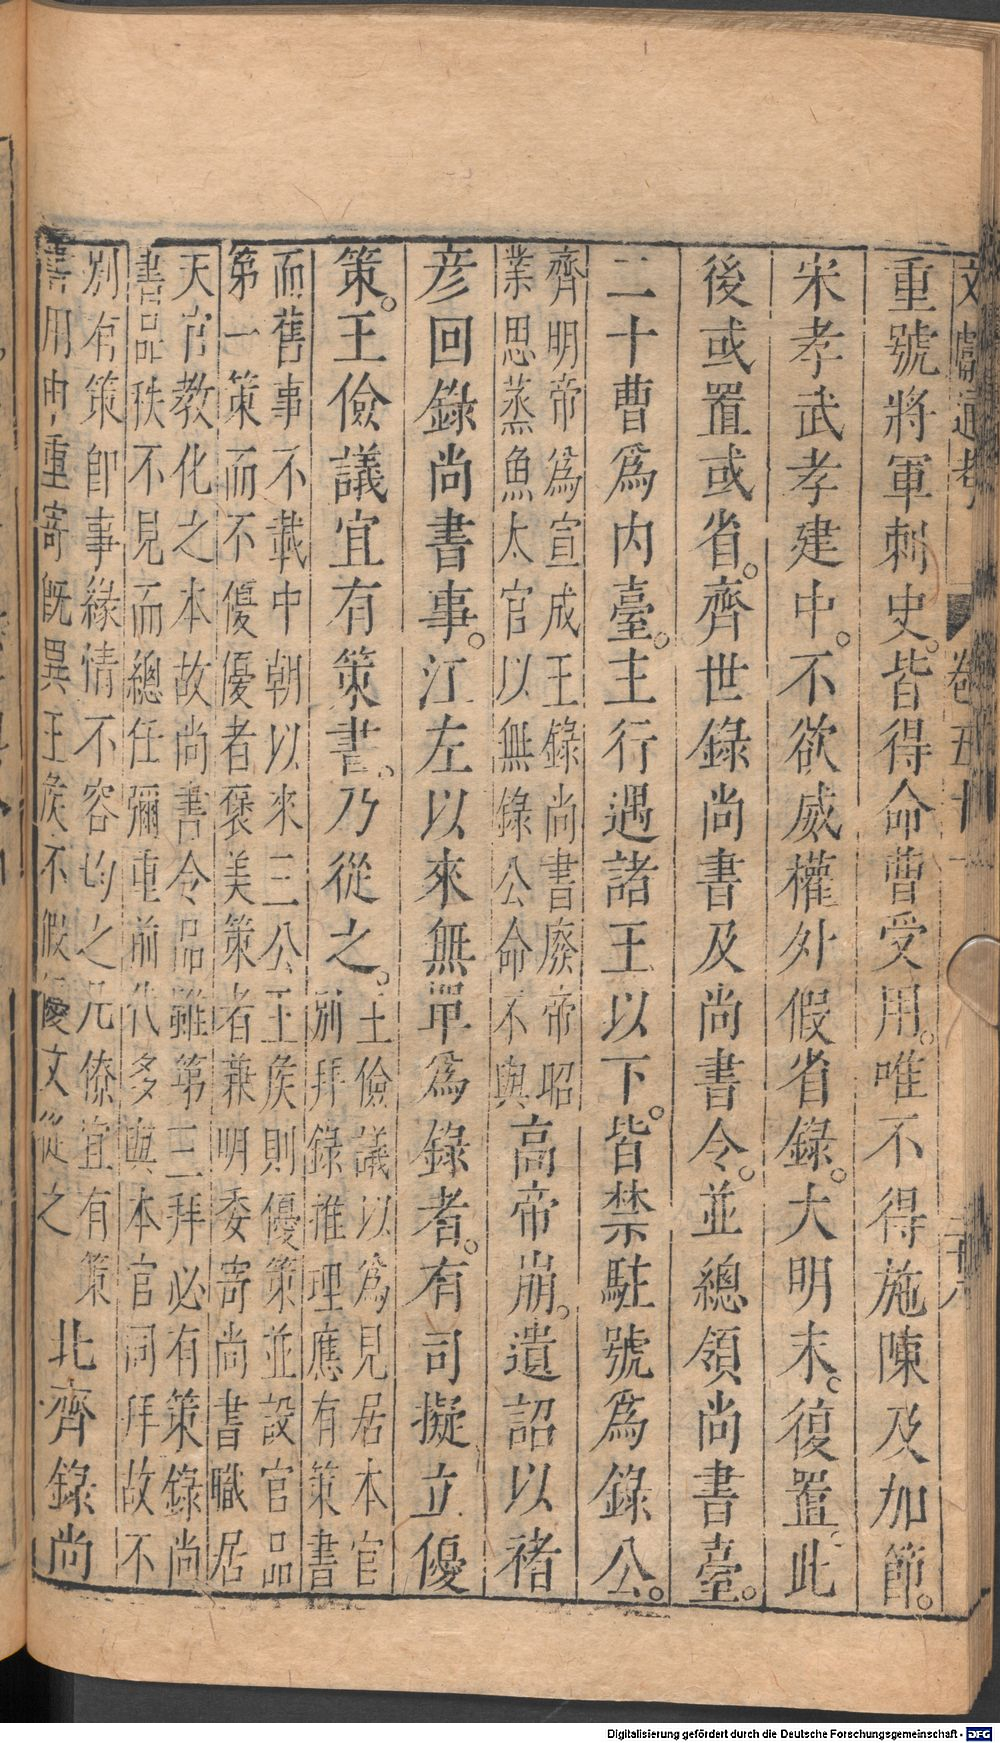 文獻通考 卷五十一 二十八
重號將軍刺史。皆得命曹受用。唯不得施陳及加節。
宋孝武孝建中。不欲威權外假省錄。大明末。復置。此
後或置或省。齊世錄尚書及尚書令。並總領尚書臺。
二十曹爲内臺。主行遇諸王以下。皆禁駐號爲錄公。
齊明帝爲宣成王錄尚書廢帝昭
業思蒸魚太官以無錄公命不與
高帝崩。遺詔以褚
彦回錄尚書事。江左以來無單爲錄者。有司擬立優
策。王儉議宜有策書。乃從之。
王儉議以爲見居本官
別拜錄推理應有策書
而舊事不載中朝以來三公王侯則優策並設官品
第一策而不優優者褒美策者兼明委寄尚書職居
天官教化之本故尚書令品雖第三拜必有策錄尚
書品秩不見而總任彌重前代多與本官同拜故不
別有策卽事緣情不容均之凡僚宜有策
書用申重寄旣異王侯不假優文從之
北齊錄尚
Digitalisierung gefördert durch die Deutsche Forschungsgemeinschaft - DFG